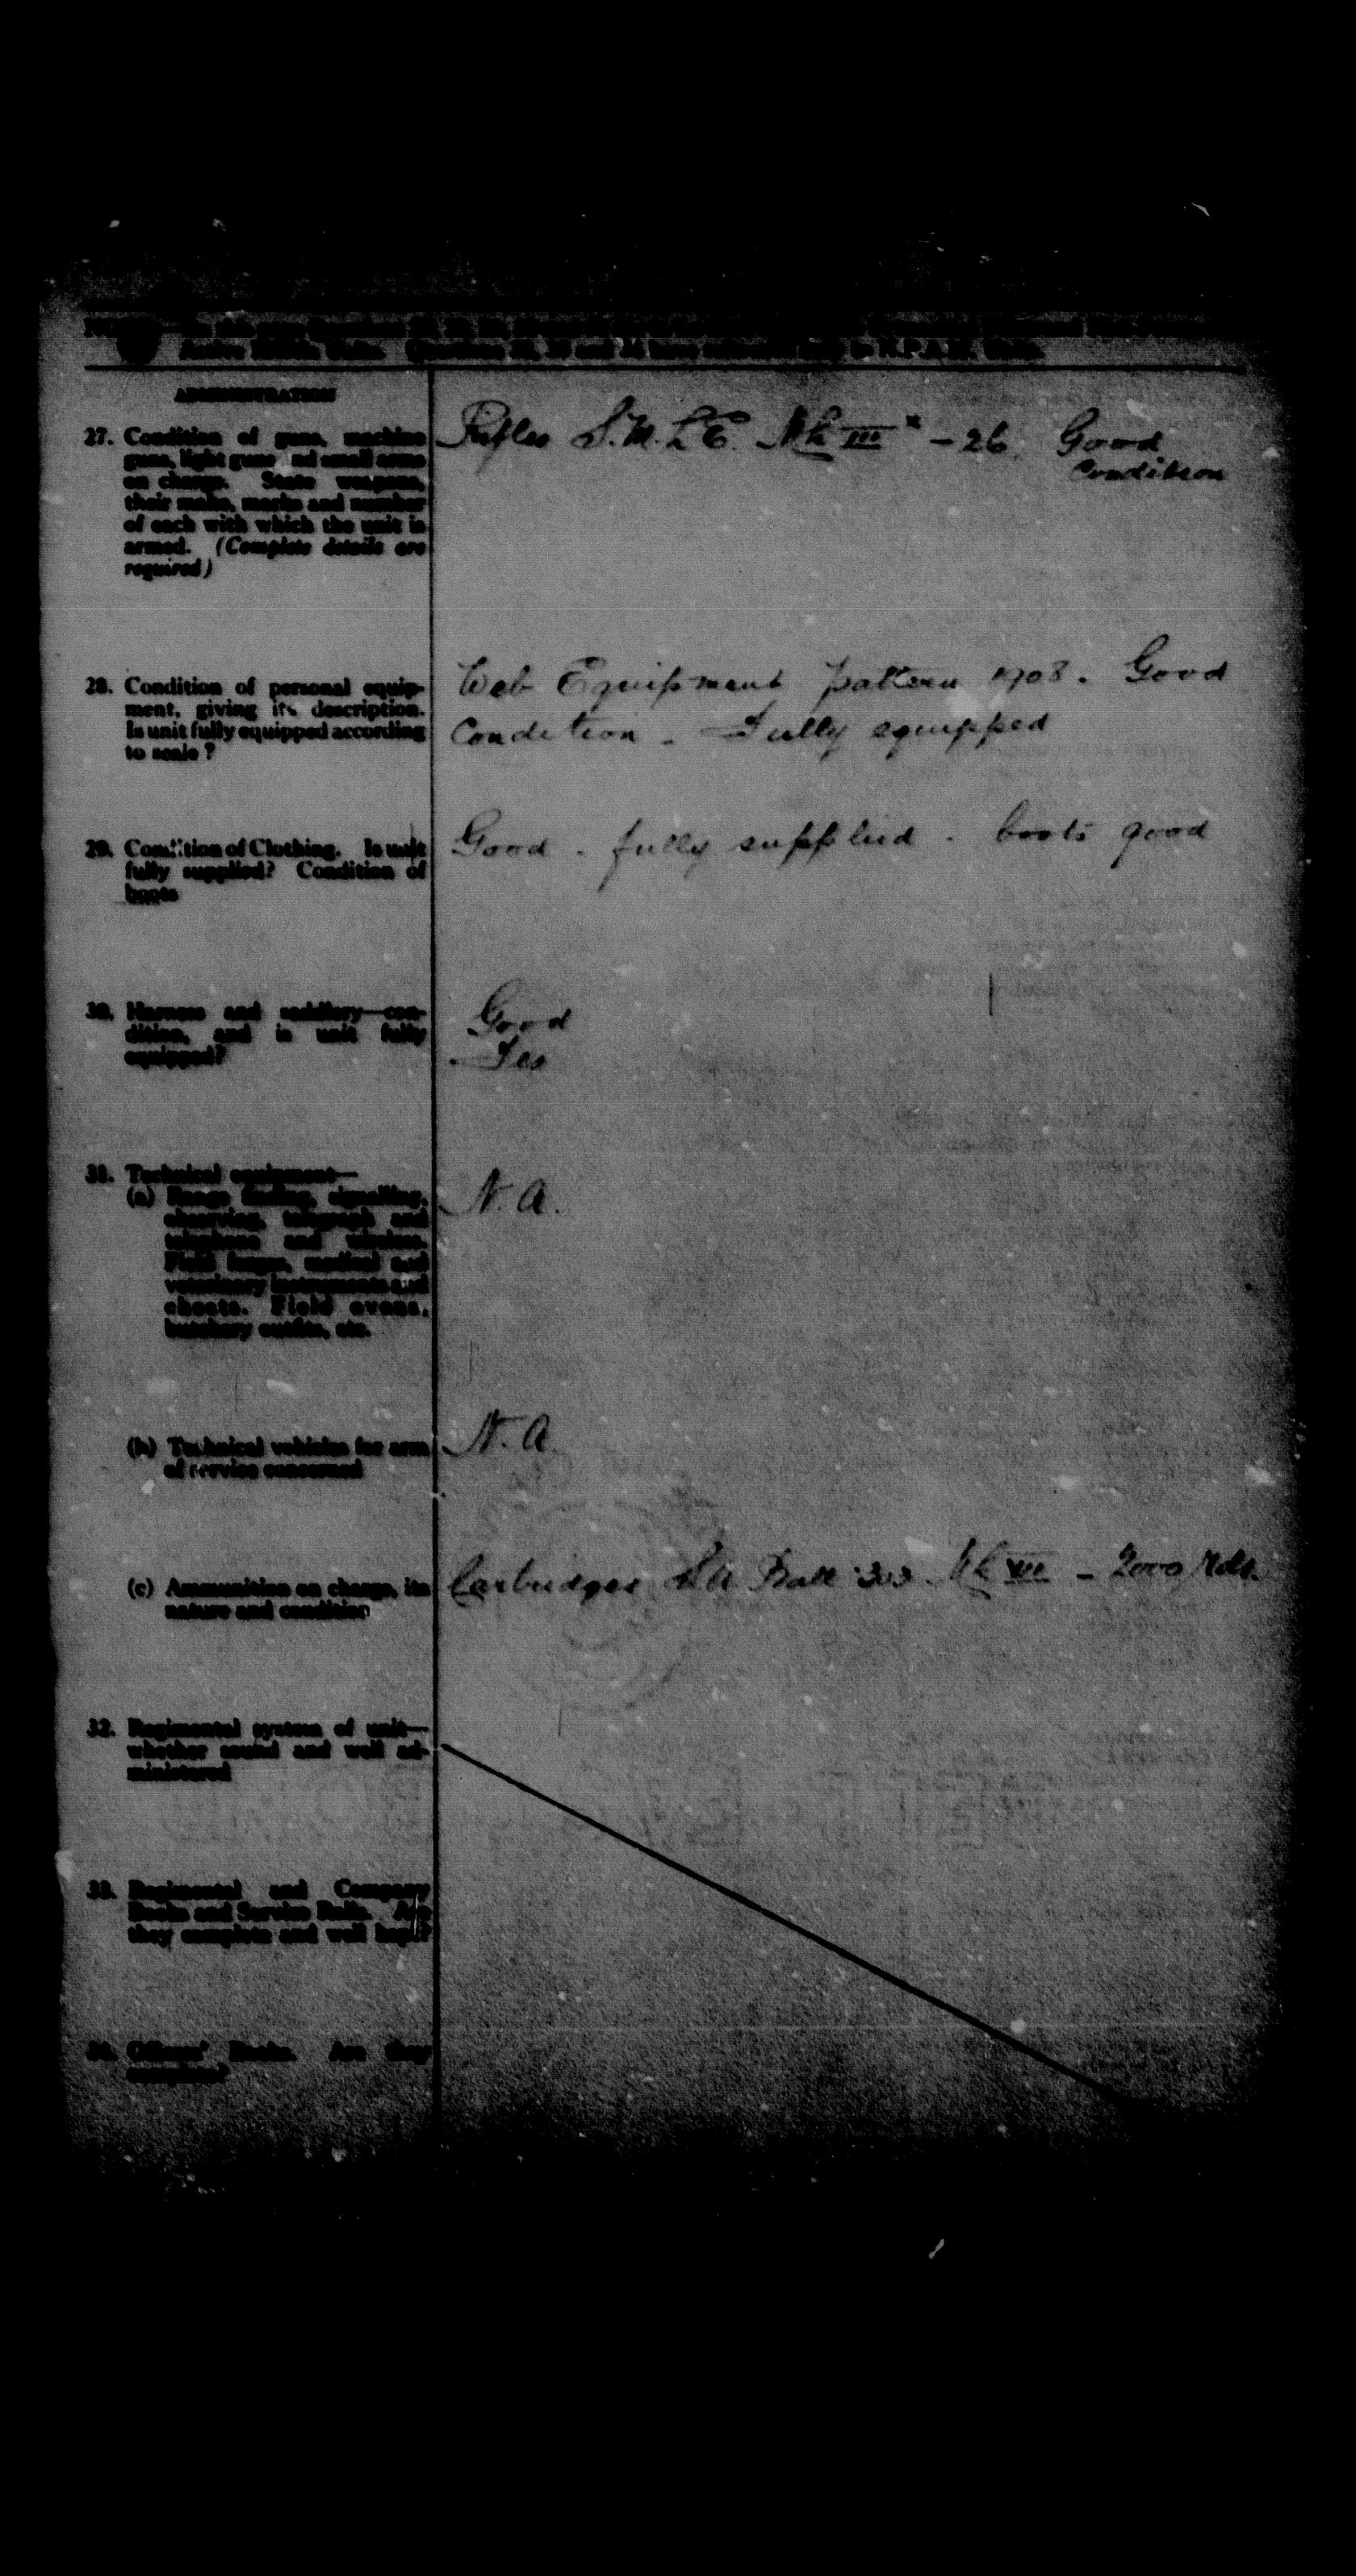 ADMINISTRATION
27. Condition of guns, machine
guns, light guns and small arms
on charge. State weapons,
their make, marks and number
of each with which the unit is
armed. (Complete details are
required)
Rifles S.M.L.E. Mk III* - 26. Good
Condition
28. Condition of personal equip-
ment, giving its description.
Is unit fully equipped according
to scale ?
Web Equipment pattern 1908. Good
Condition - Fully equipped
29. Condition of Clothing. Is unit
fully supplied? Condition of
boots
Good - fully supplied - boots good
30. Harness and saddlery—con-
dition, and is unit fully
equipped?
Good
Yes
31. Technical equipment—
(a) Range finding, signalling,
observing, telegraph and
telephone and wireless.
Field forges, medical and
veterinary instruments and
chests. Field ovens,
butchery outfits, etc.
N.A.
(b) Technical vehicles for arm
of service concerned
N.A.
(c) Ammunition on charge, its
nature and condition
Cartridges S.A Ball .303 Mk VII - 2000 Rds.
32. Regimental system of unit—
whether sound and well ad-
ministered
33. Regimental and Company
Books and Service Rolls. Are
they complete and well kept?
34. Officers' Books. Are they
complete?